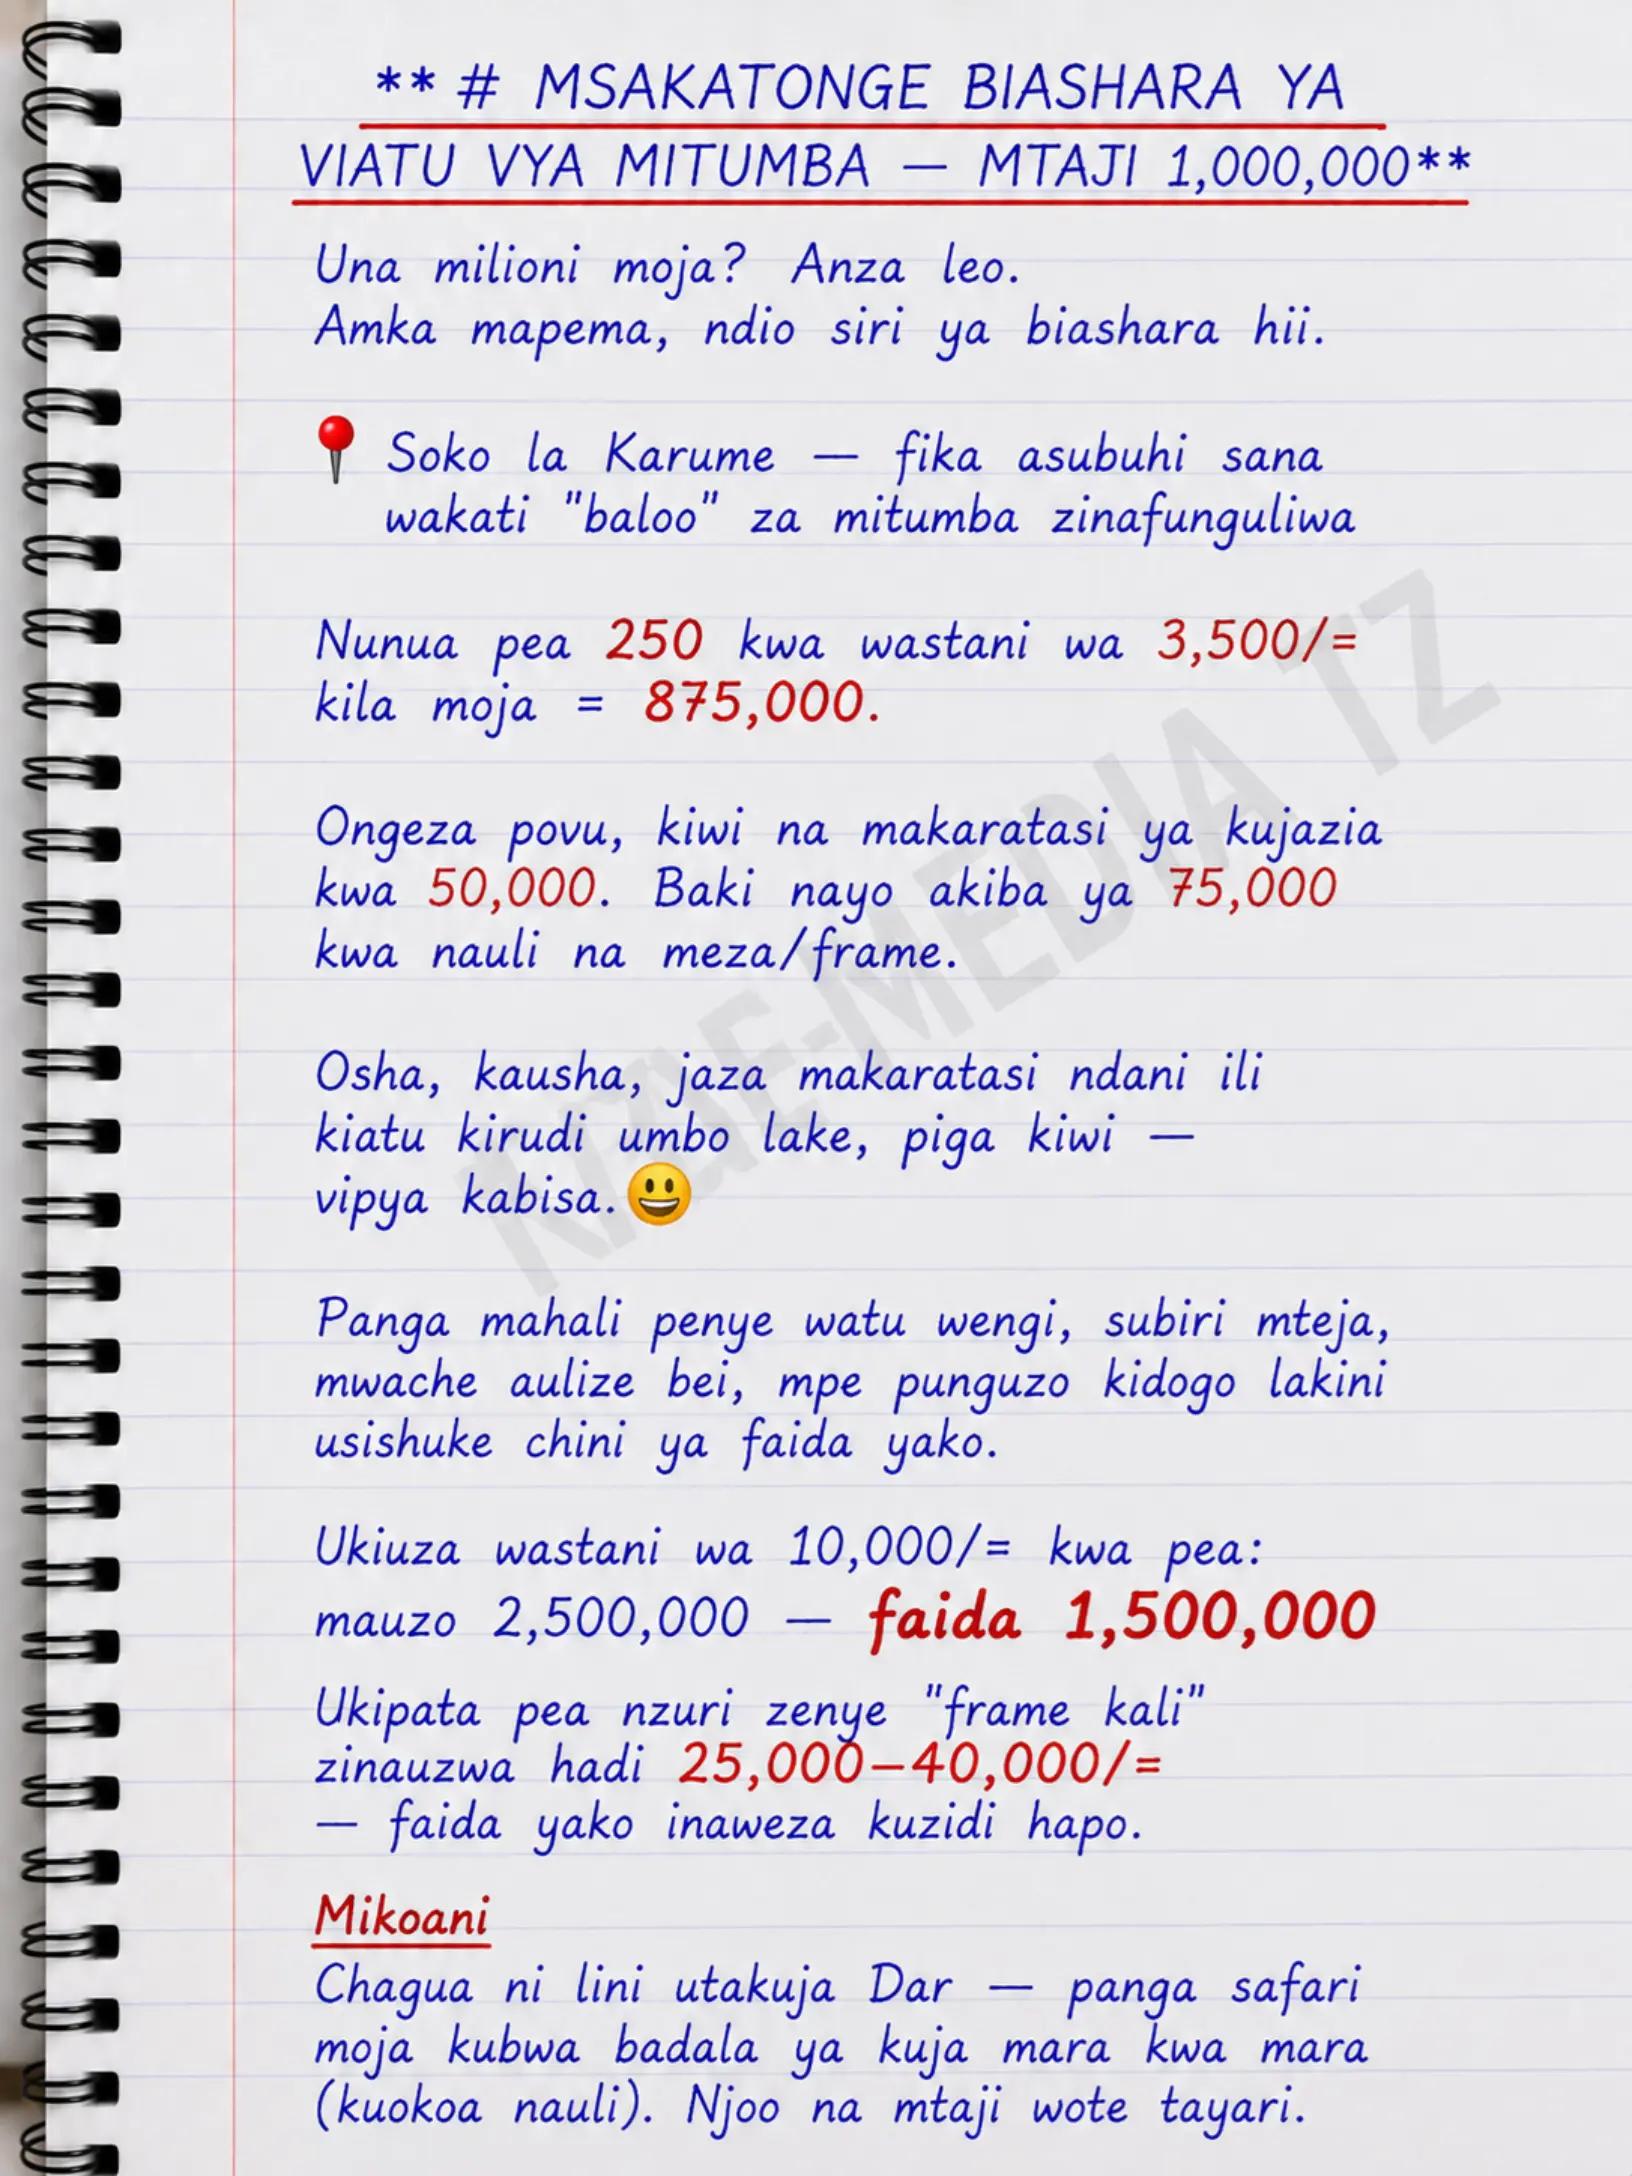 ** # MSAKATONGE BIASHARA YA
VIATU VYA MITUMBA — MTAJI 1,000,000**
Una milioni moja? Anza leo.
Amka mapema, ndio siri ya biashara hii.
📍 Soko la Karume — fika asubuhi sana
wakati "baloo" za mitumba zinafunguliwa
Nunua pea 250 kwa wastani wa 3,500/=
kila moja = 875,000.
Ongeza povu, kiwi na makaratasi ya kujazia
kwa 50,000. Baki nayo akiba ya 75,000
kwa nauli na meza/frame.
Osha, kausha, jaza makaratasi ndani ili
kiatu kirudi umbo lake, piga kiwi —
vipya kabisa.😃
Panga mahali penye watu wengi, subiri mteja,
mwache aulize bei, mpe punguzo kidogo lakini
usishuke chini ya faida yako.
Ukiuza wastani wa 10,000/= kwa pea:
mauzo 2,500,000 — faida 1,500,000
Ukipata pea nzuri zenye "frame kali"
zinauzwa hadi 25,000–40,000/=
— faida yako inaweza kuzidi hapo.
Mikoani
Chagua ni lini utakuja Dar — panga safari
moja kubwa badala ya kuja mara kwa mara
(kuokoa nauli). Njoo na mtaji wote tayari.
TZ